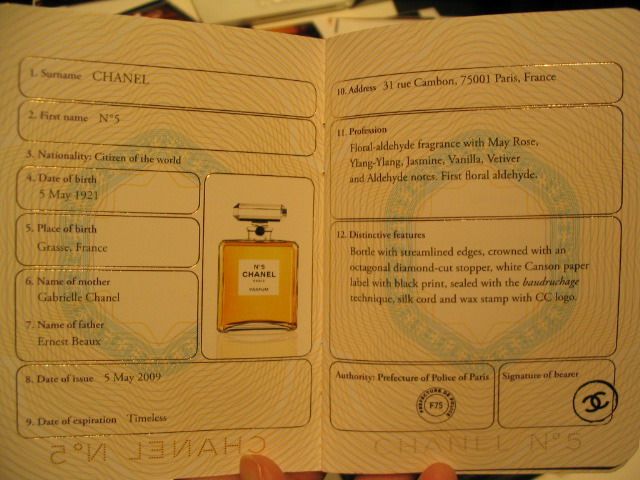 1. Surname CHANEL
2. First name N°5
3. Nationality: Citizen of the world
4. Date of birth
5 May 1921
5. Place of birth
Grasse, France
6. Name of mother
Gabrielle Chanel
7. Name of father
Ernest Beaux
8. Date of issue 5 May 2009
9. Date of expiration Timeless
N°5
CHANEL
PARIS
PARFUM
CHANEL N°5
10. Address 31 rue Cambon, 75001 Paris, France
11. Profession
Floral-aldehyde fragrance with May Rose,
Ylang-Ylang, Jasmine, Vanilla, Vetiver
and Aldehyde notes. First floral aldehyde.
12. Distinctive features
Bottle with streamlined edges, crowned with an
octagonal diamond-cut stopper, white Canson paper
label with black print, sealed with the baudruchage
technique, silk cord and wax stamp with CC logo.
Authority: Prefecture of Police of Paris
PREFECTURE DE POLICE
F75
Signature of bearer
CHANEL N°5